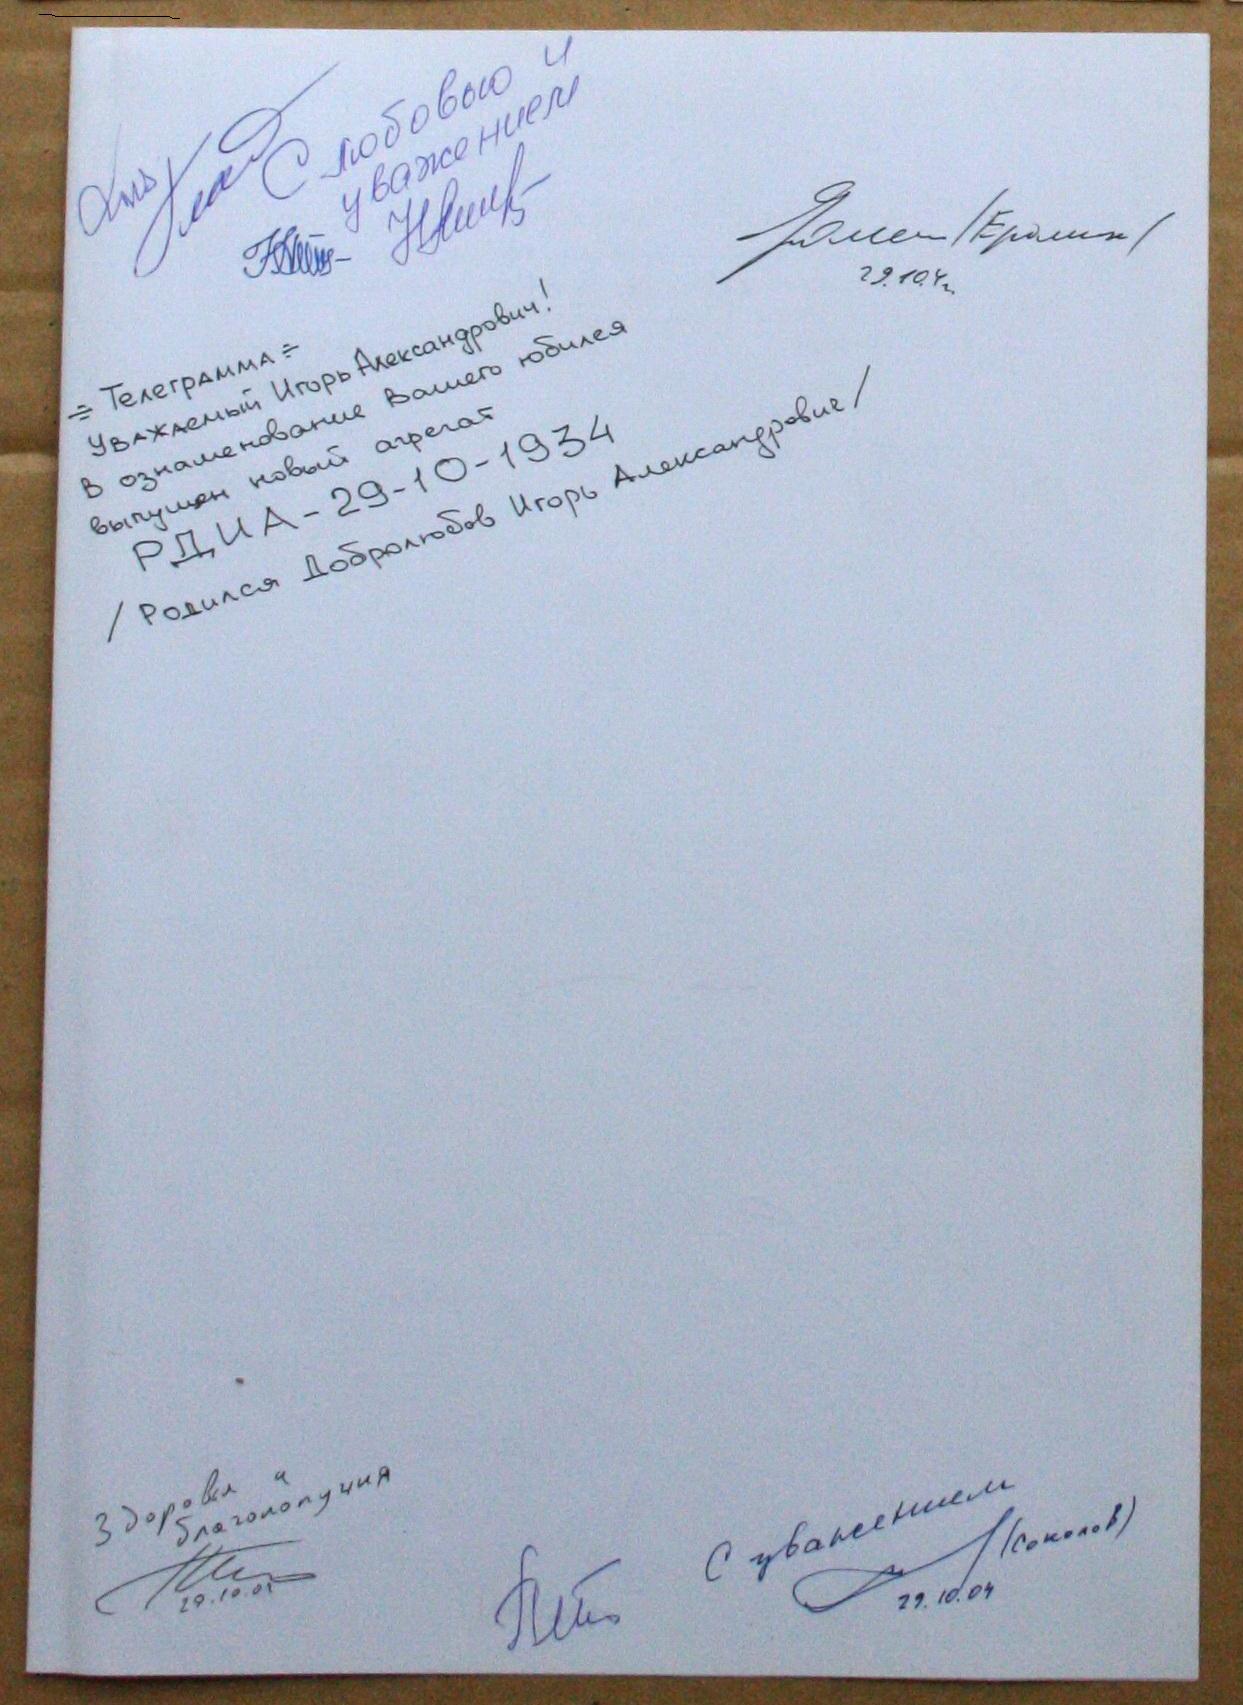 С любовью и
уважением
/Еремин/
29.10.4г.
= Телеграмма =
Уважаемый Игорь Александрович!
В ознаменование Вашего юбилея
выпущен новый агрегат
РДИА-29-10-1934
/Родился Добролюбов Игорь Александрович/
Здоровья и
благополучия
29.10.04
С уважением
(Соколов)
29.10.04